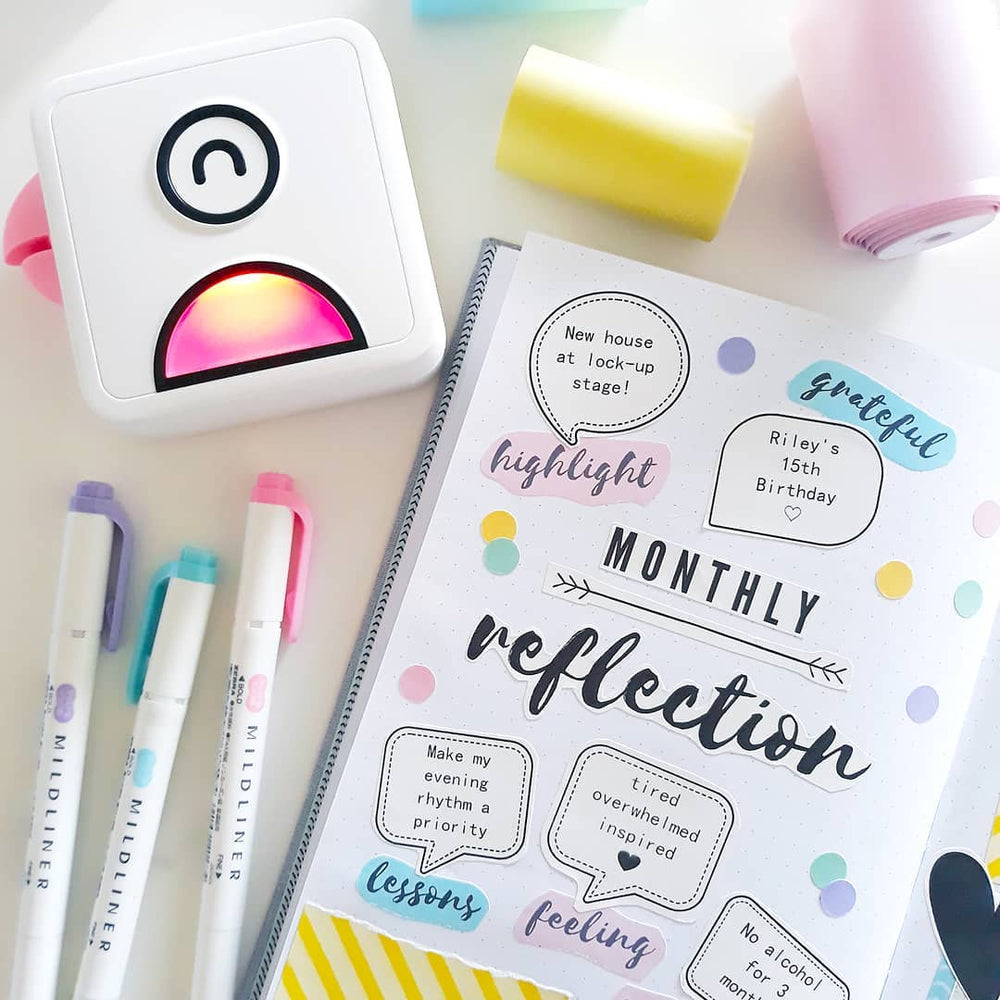 New house
at lock-up
stage!
highlight
grateful
Riley's
15th
Birthday
MONTHLY
reflection
Make my
evening
rhythm a
priority
lessons
tired
overwhelmed
inspired
feeling
No alcohol
for 3
BOLD
MILDLINER
MILDLINER
FINE
BOLD
ZEBRA
MILDLINER
FINE